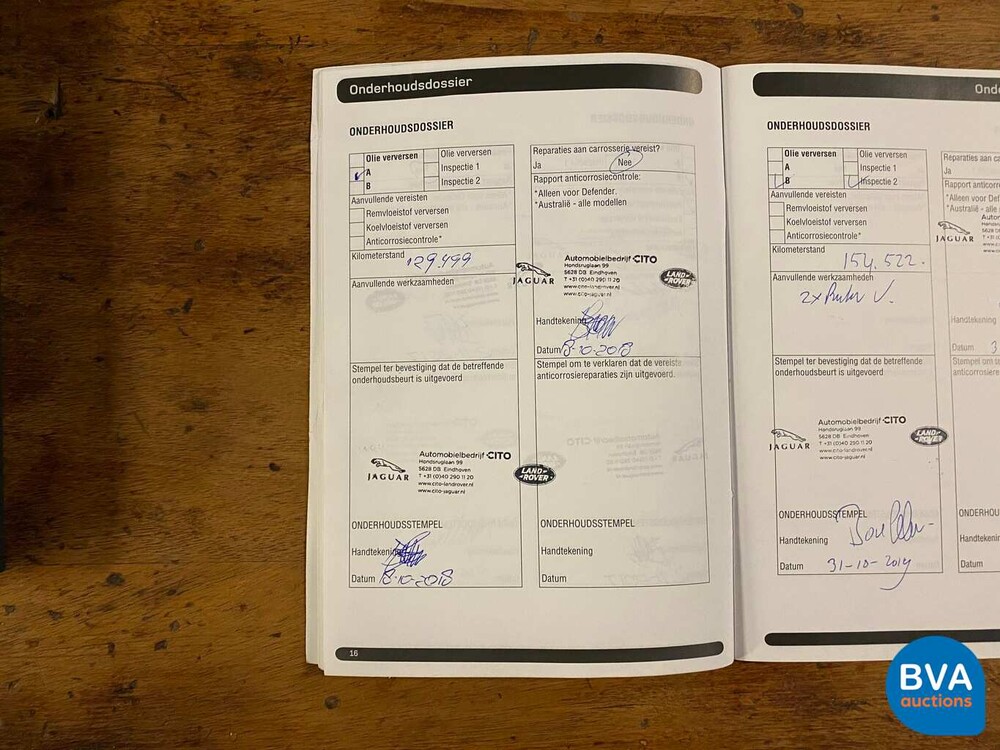 Onderhoudsdossier
ONDERHOUDSDOSSIER
Olie verversen
A
B
Olie verversen
Inspectie 1
Inspectie 2
Aanvullende vereisten
Remvloeistof verversen
Koelvloeistof verversen
Anticorrosiecontrole*
Kilometerstand 129.499
Aanvullende werkzaamheden
Stempel ter bevestiging dat de betreffende
onderhoudsbeurt is uitgevoerd
JAGUAR
Automobielbedrijf CITO
Hondsruglaan 99
5628 DB Eindhoven
T +31 (0)40 290 11 20
www.cito-landrover.nl
www.cito-jaguar.nl
LAND ROVER
ONDERHOUDSSTEMPEL
Handtekening
Datum 18-10-2018
Reparaties aan carrosserie vereist?
Ja Nee
Rapport anticorrosiecontrole:
*Alleen voor Defender.
*Australië - alle modellen
JAGUAR
Automobielbedrijf CITO
Hondsruglaan 99
5628 DB Eindhoven
T +31 (0)40 290 11 20
www.cito-landrover.nl
www.cito-jaguar.nl
LAND ROVER
Handtekening
Datum 18-10-2018
Stempel om te verklaren dat de vereiste
anticorrosiereparaties zijn uitgevoerd.
ONDERHOUDSSTEMPEL
Handtekening
Datum
16
Onde
ONDERHOUDSDOSSIER
Olie verversen
A
B
Olie verversen
Inspectie 1
Inspectie 2
Aanvullende vereisten
Remvloeistof verversen
Koelvloeistof verversen
Anticorrosiecontrole*
Kilometerstand 154.522.
Aanvullende werkzaamheden
2x V.
Stempel ter bevestiging dat de betreffende
onderhoudsbeurt is uitgevoerd
JAGUAR
Automobielbedrijf CITO
Hondsruglaan 99
5628 DB Eindhoven
T +31 (0)40 290 11 20
www.cito-landrover.nl
www.cito-jaguar.nl
LAND ROVER
ONDERHOUDSSTEMPEL
Handtekening
Datum 31-10-2019
Reparaties aan ca
Ja
Rapport anticorro
*Alleen voor Def
*Australië - alle
JAGUAR
Handtekening
Datum 3
Stempel om
anticorrosie
ONDERHOU
Handtekenin
Datum
BVA
auctions